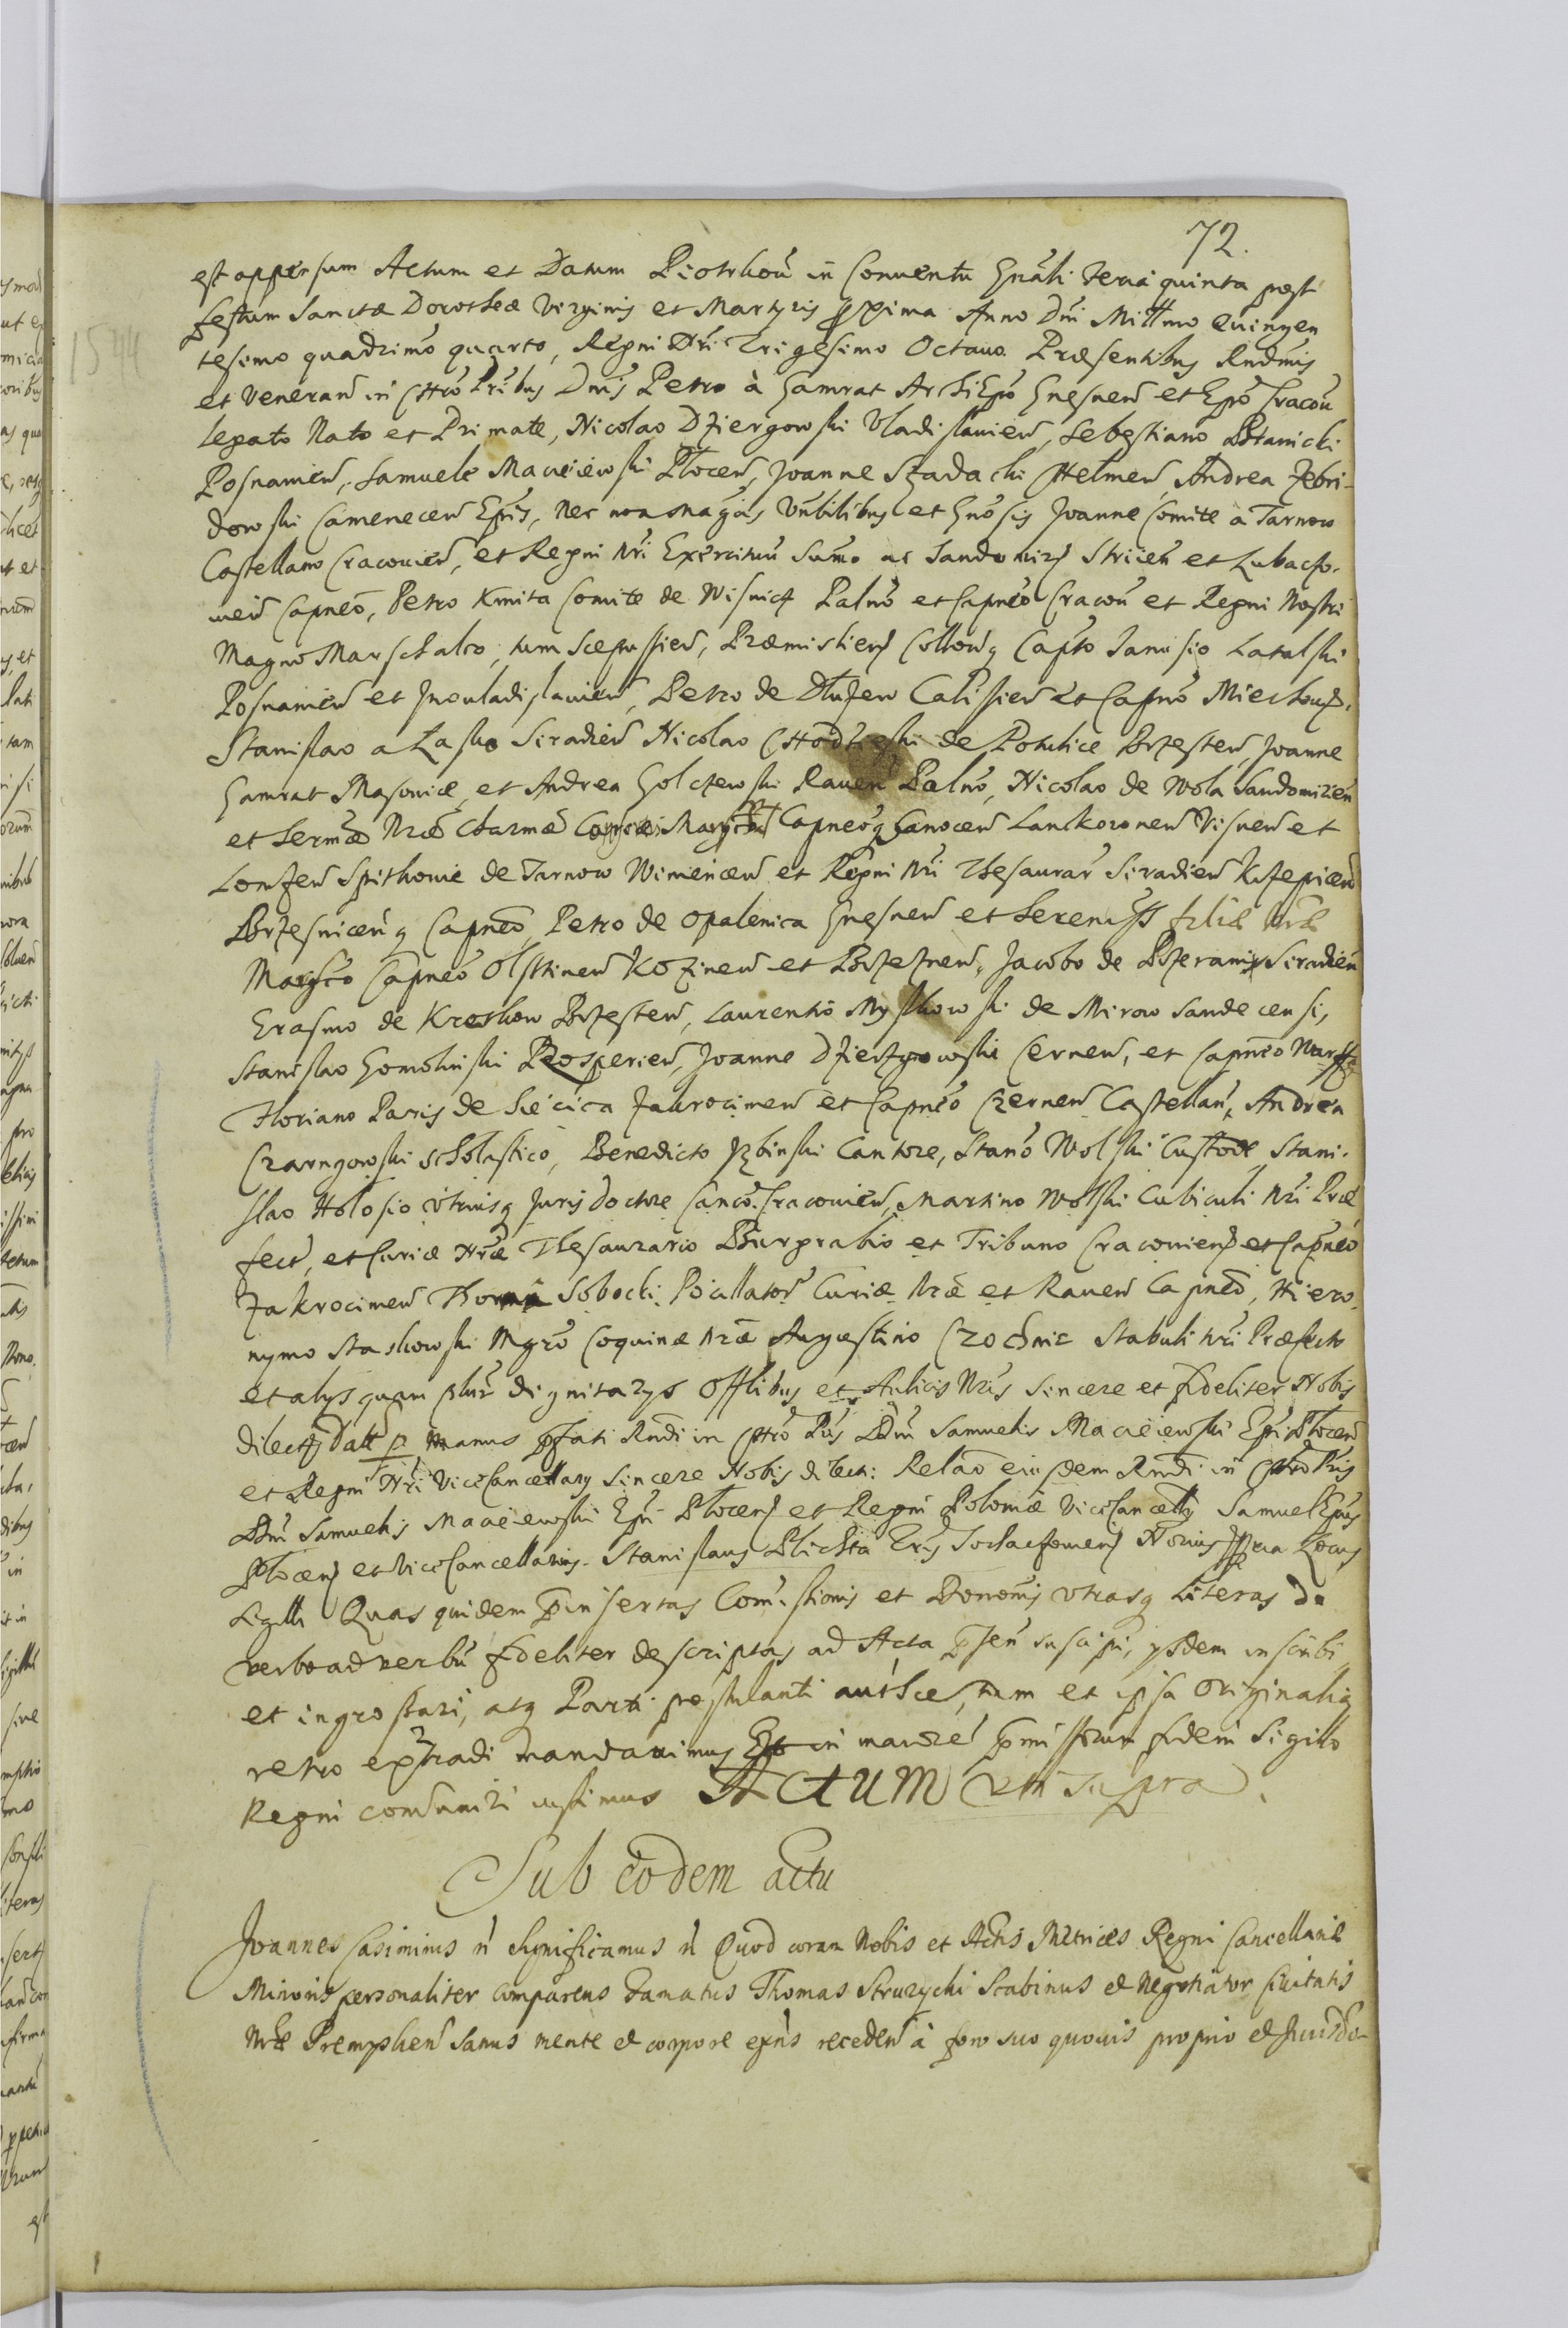 72.
est appensum Actum et Datum Piotrkoů in Conuentu Gnãli feria quinta post
1544
festum Sanctæ Dorotheæ Virginis et Martyris proxima Anno Dni Millmo Quingen
tesimo quadrimo quarto, Regni Nri Trigesimo Octauo. Præsentibus Rndmis
et Veneran in Chro Pribus Dnis Petro à Gamrat ArchiEpo Gnesnen et Epo Cracou
Legato Nato et Primate, Nicolao Dziergowski Vladislauien, Sebestiano Branicki
Posnanien, Samuele Macieiewski Plocen, Joanne Dziaduski Chelmen, Andrea Zebri-
dowski Camenecen Epis, Nec non Magcis Vnbilibus et Gnosis Joanne Comite a Tarnow
Castellano Cracouien, et Regni Nri Exercituu Sumo ac Sandomirz Striien et Lubaczo-
uien Capneo, Petro Kmita Comite de Wisnicz Palno et Capneo Cracou et Regni Nostri
Magno Marschalco, tum Scepussien, Præmislien Collouq Capto Janusio Latalski
Posnanien et Jneuladislauien, Petro de Dluzew Calissien et Capno Mieshouz.
Stanislao a Lasko Siradien Nicolao de Potulice Brzesten, Joanne
Gamrat Masouiæ, et Andrea Golczewski Rauen Palno, Nicolao de Wola Sandomirien
et Sermæ Nræ Charmæ Capneoq Sanocen Lanckoronen Visnen et
Lomzen Spithouie de Tarnow Winiencen et Regni Nri Thesaurar Siradien Krzepicen
Brzesnicenq Capneo, Petro de Opalenica Gnesnen et Sereniss filiæ Nræ
Magro Capneo Olsztinen Kozinen et Brzeznen, Jacobo de Siradien
Erasmo de Kreskow Brzesten, Laurentio Myskowski de Mirow Sandecensi,
Stanislao Gomolinski Rosperien, Joanne Dzierzgowski Cernen, et Capneo Warss
Floriano Paris de Siecica Zakrocimen et Capneo Czernen Castellan, Andrea
Czarngowski Scholastico, Benedicto Jzbinski Cantore, Stano Wolski Custode, Stani-
slao Holosio vtriusq Juris doctore Canco. Cracouien, Martino Wolski Cubiculi Nri Præ
fect, et Curiæ Nræ Thesaurario Burgrabio et Tribuno Cracouien et Capneo
Zakrocimen Thoma Sobocki Pocillator Curiæ Nræ et Rauen Capneo, Hiero-
nymo Staskowski Mgro Coquinæ Nræ Augustino Czochnic Stabuli Nri Præfecto
et alys quam plur dignitarys Offlibus et Aulicis Nris Sincere et fideliter Nobis
dilectis Datt p manus pfati Rndi in Chro Pris Dni Samuelis Macieiewski Epi Plocen
et Regni Nri ViceCancellary Sincere Nobis dilecti. Relao eiusdem Rndi in Chro Pris
Dni Samuelis Macieiewski Epi Plocen et Regni Poloniæ ViceCancelly Samuel Epus
Plocen et ViceCancellarius. Stanislaus Plichta Sochaczouien Locus
Sigilli Quas quidem pinsertas Comissionis et Bononis vtrasq Literas de
verbo ad verbu fideliter descriptas ad Acta psen suscipi, ysdem inscribi
et ingrossari, atq Parti postulanti autsce, tum et ipsa Originalia
retro extradi mandauimus Et in maiore pmissorum fidem Sigillo
Regni comuniri iussimus ACTUM Utt Supra.
Sub eodem actu
Joannes Casimirus ñ Significamus ñ Quod coram Nobis et Actis Metrices Regni Cancellariæ
Minoris personaliter comparens Famatus Thomas Struzycki Scabinus et Negotiator Ciuitatis
Nræ Premyslien Sanus mente et corpore exns receden à foro suo quouis proprio et Jurisdo-